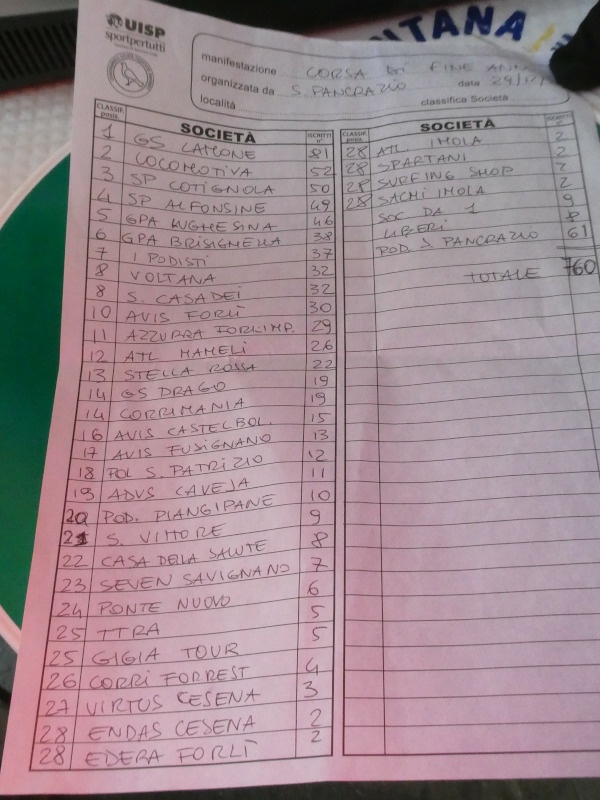 UISP
sportpertutti
NTANA
manifestazione CORSA DI FINE ANN
organizzata da S. PANCRAZIO data 29/12/
località classifica Società
CLASSIF. posiz. SOCIETÀ ISCRITTI n°
1 GS LAMONE 81
2 LOCOMOTIVA 52
3 SP COTIGNOLA 50
4 SP ALFONSINE 49
5 GPA LUGHESINA 46
6 GPA BRISIGHELLA 38
7 I PODISTI 37
8 VOLTANA 32
8 S. CASADEI 32
10 AVIS FORLÌ 30
11 AZZURRA FORLIMP. 29
12 ATL MAMELI 26
13 STELLA ROSSA 22
14 GS DRAGO 19
14 CORRIMANIA 19
16 AVIS CASTELBOL. 15
17 AVIS FUSIGNANO 13
18 POL S. PATRIZIO 12
19 ADVS CAVEJA 11
20 POD. PIANGIPANE 10
21 S. VITTORE 9
22 CASA DELLA SALUTE 8
23 SEVEN SAVIGNANO 7
24 PONTE NUOVO 6
25 TTRA 5
25 GIGIA TOUR 5
26 CORRI FORREST 4
27 VIRTUS CESENA 3
28 ENDAS CESENA 2
28 EDERA FORLÌ 2
CLASSIF. posiz. SOCIETÀ ISCRITTI n°
28 ATL. IMOLA 2
28 SPARTANI 2
28 SURFING SHOP 2
28 SACMI IMOLA 2
SOC DA 1 9
LIBERI 8
POD. S PANCRAZIO 61
TOTALE 760